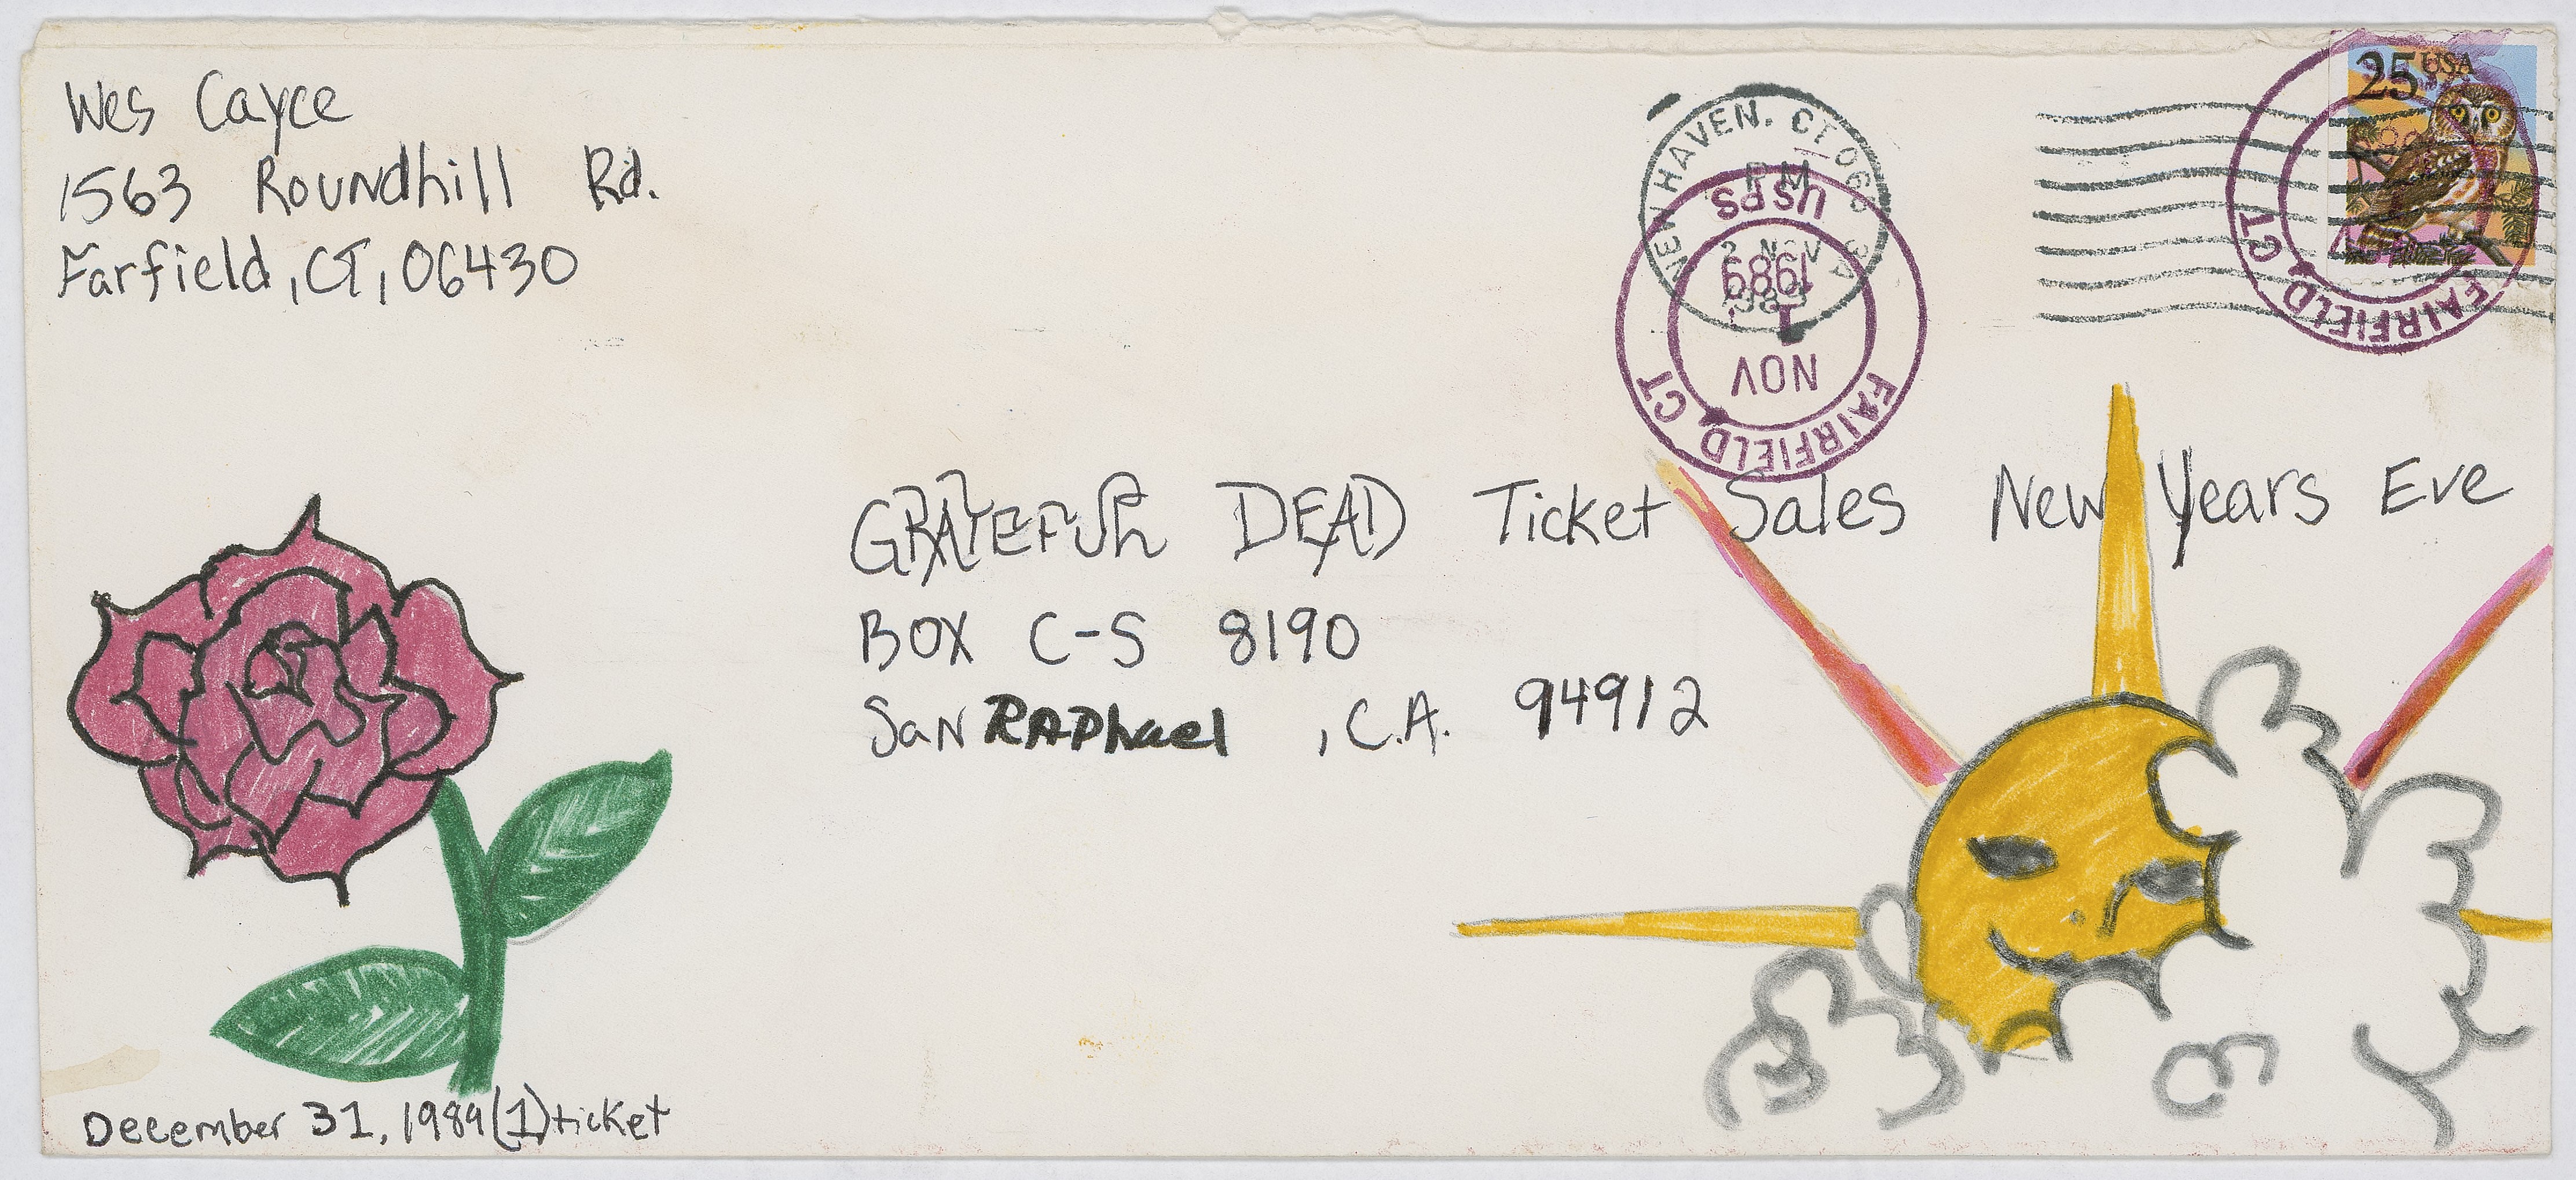 Wes Cayce
1563 Roundhill Rd.
Farfield, CT, 06430
NEW HAVEN, CT 06
PM
2 NOV
1989
USPS
1989
1
NOV
FAIRFIELD CT
25 USA
FAIRFIELD CT
GRATEFUL DEAD Ticket Sales New Years Eve
BOX C-S 8190
San RAPhael , C.A. 94912
December 31, 1989 (1) ticket